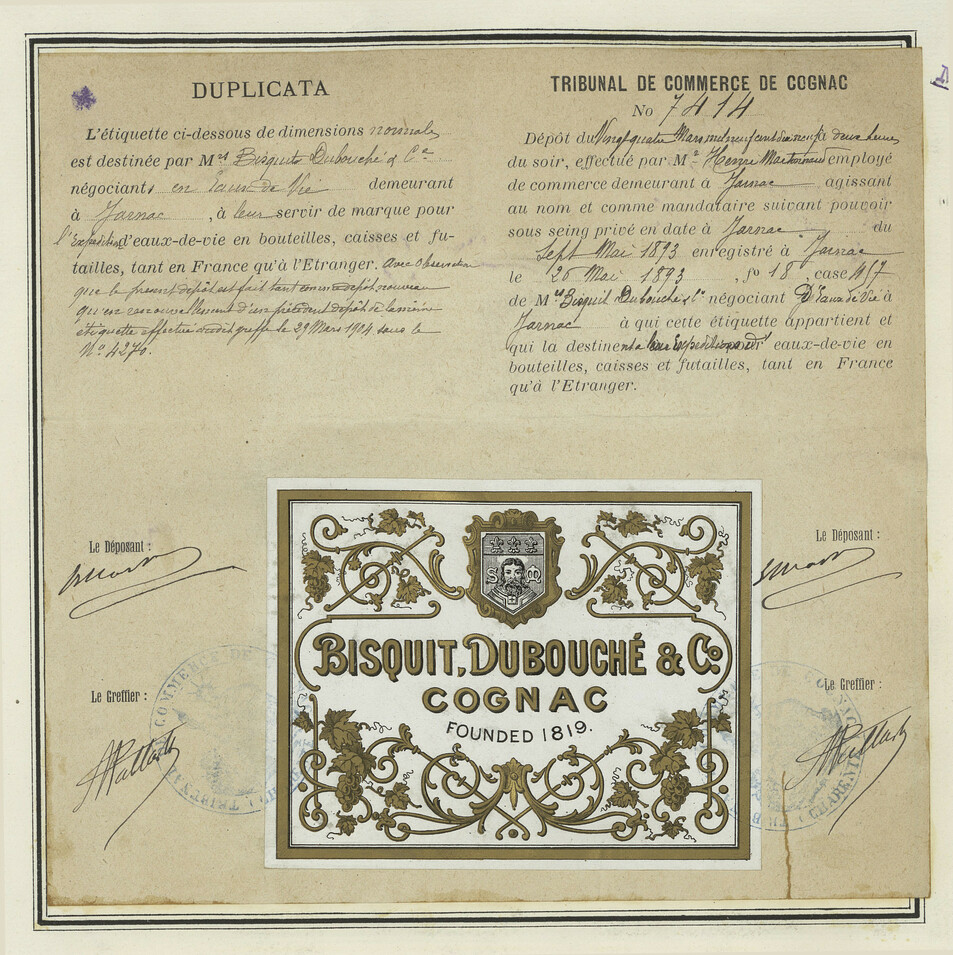 DUPLICATA
L'étiquette ci-dessous de dimensions normales
est destinée par Mrs Bisquit Dubouché & Cie
négociants en Eaux de Vie demeurant
à Jarnac, à leur servir de marque pour
l'Expédition d'eaux-de-vie en bouteilles, caisses et fu-
tailles, tant en France qu'à l'Etranger. Avec Observation
que le présent dépôt est fait tant comme dépôt nouveau
qu'en renouvellement d'un précédent dépôt de la même
étiquette effectué audit greffe le 29 Mars 1904 sous le
No 4270.
TRIBUNAL DE COMMERCE DE COGNAC
No 7414
Dépôt du Vingt quatre Mars mil neuf cent dix neuf à deux heures
du soir, effectué par Mr Henri employé
de commerce demeurant à Jarnac agissant
au nom et comme mandataire suivant pouvoir
sous seing privé en date à Jarnac du
Sept Mai 1893 enregistré à Jarnac
le 26 Mai 1893, fo 18, case
de Mrs Bisquit Dubouché & Cie négociant D'Eaux de Vie à
Jarnac à qui cette étiquette appartient et
qui la destinent à leur Expédition d'eaux-de-vie en
bouteilles, caisses et futailles, tant en France
qu'à l'Etranger.
Le Déposant :
Le Déposant :
S M
BISQUIT, DUBOUCHÉ & Co.
COGNAC
FOUNDED 1819.
Le Greffier :
Le Greffier :